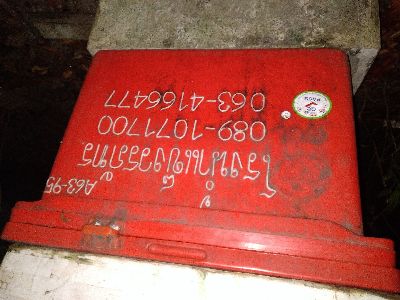 A63-95
โรงน้ำแข็งวรภัทร
089-1071700
063-4166477